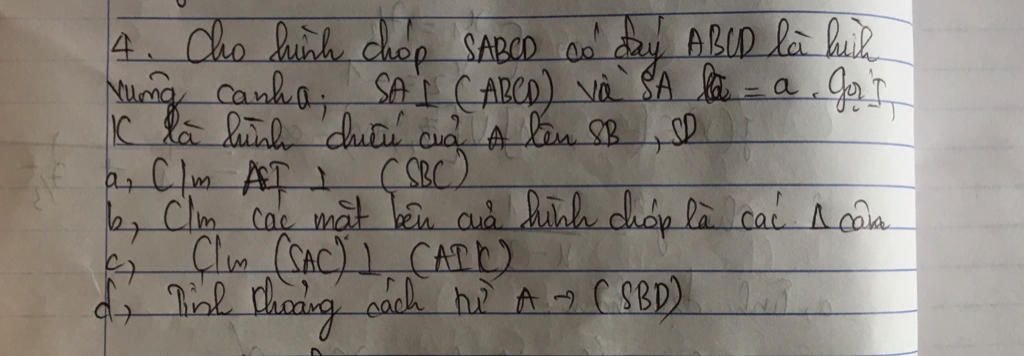 4. Cho hình chóp SABCD có đáy ABCD là hình
vuông cạnh a; SA ⊥ (ABCD) và SA = a. Gọi I,
K là hình chiếu của A lên SB, SD
a, C/m AI ⊥ (SBC)
b, C/m các mặt bên của hình chóp là các Δ
c, C/m (SAC) ⊥ (AIK)
d, Tính khoảng cách từ A → (SBD)